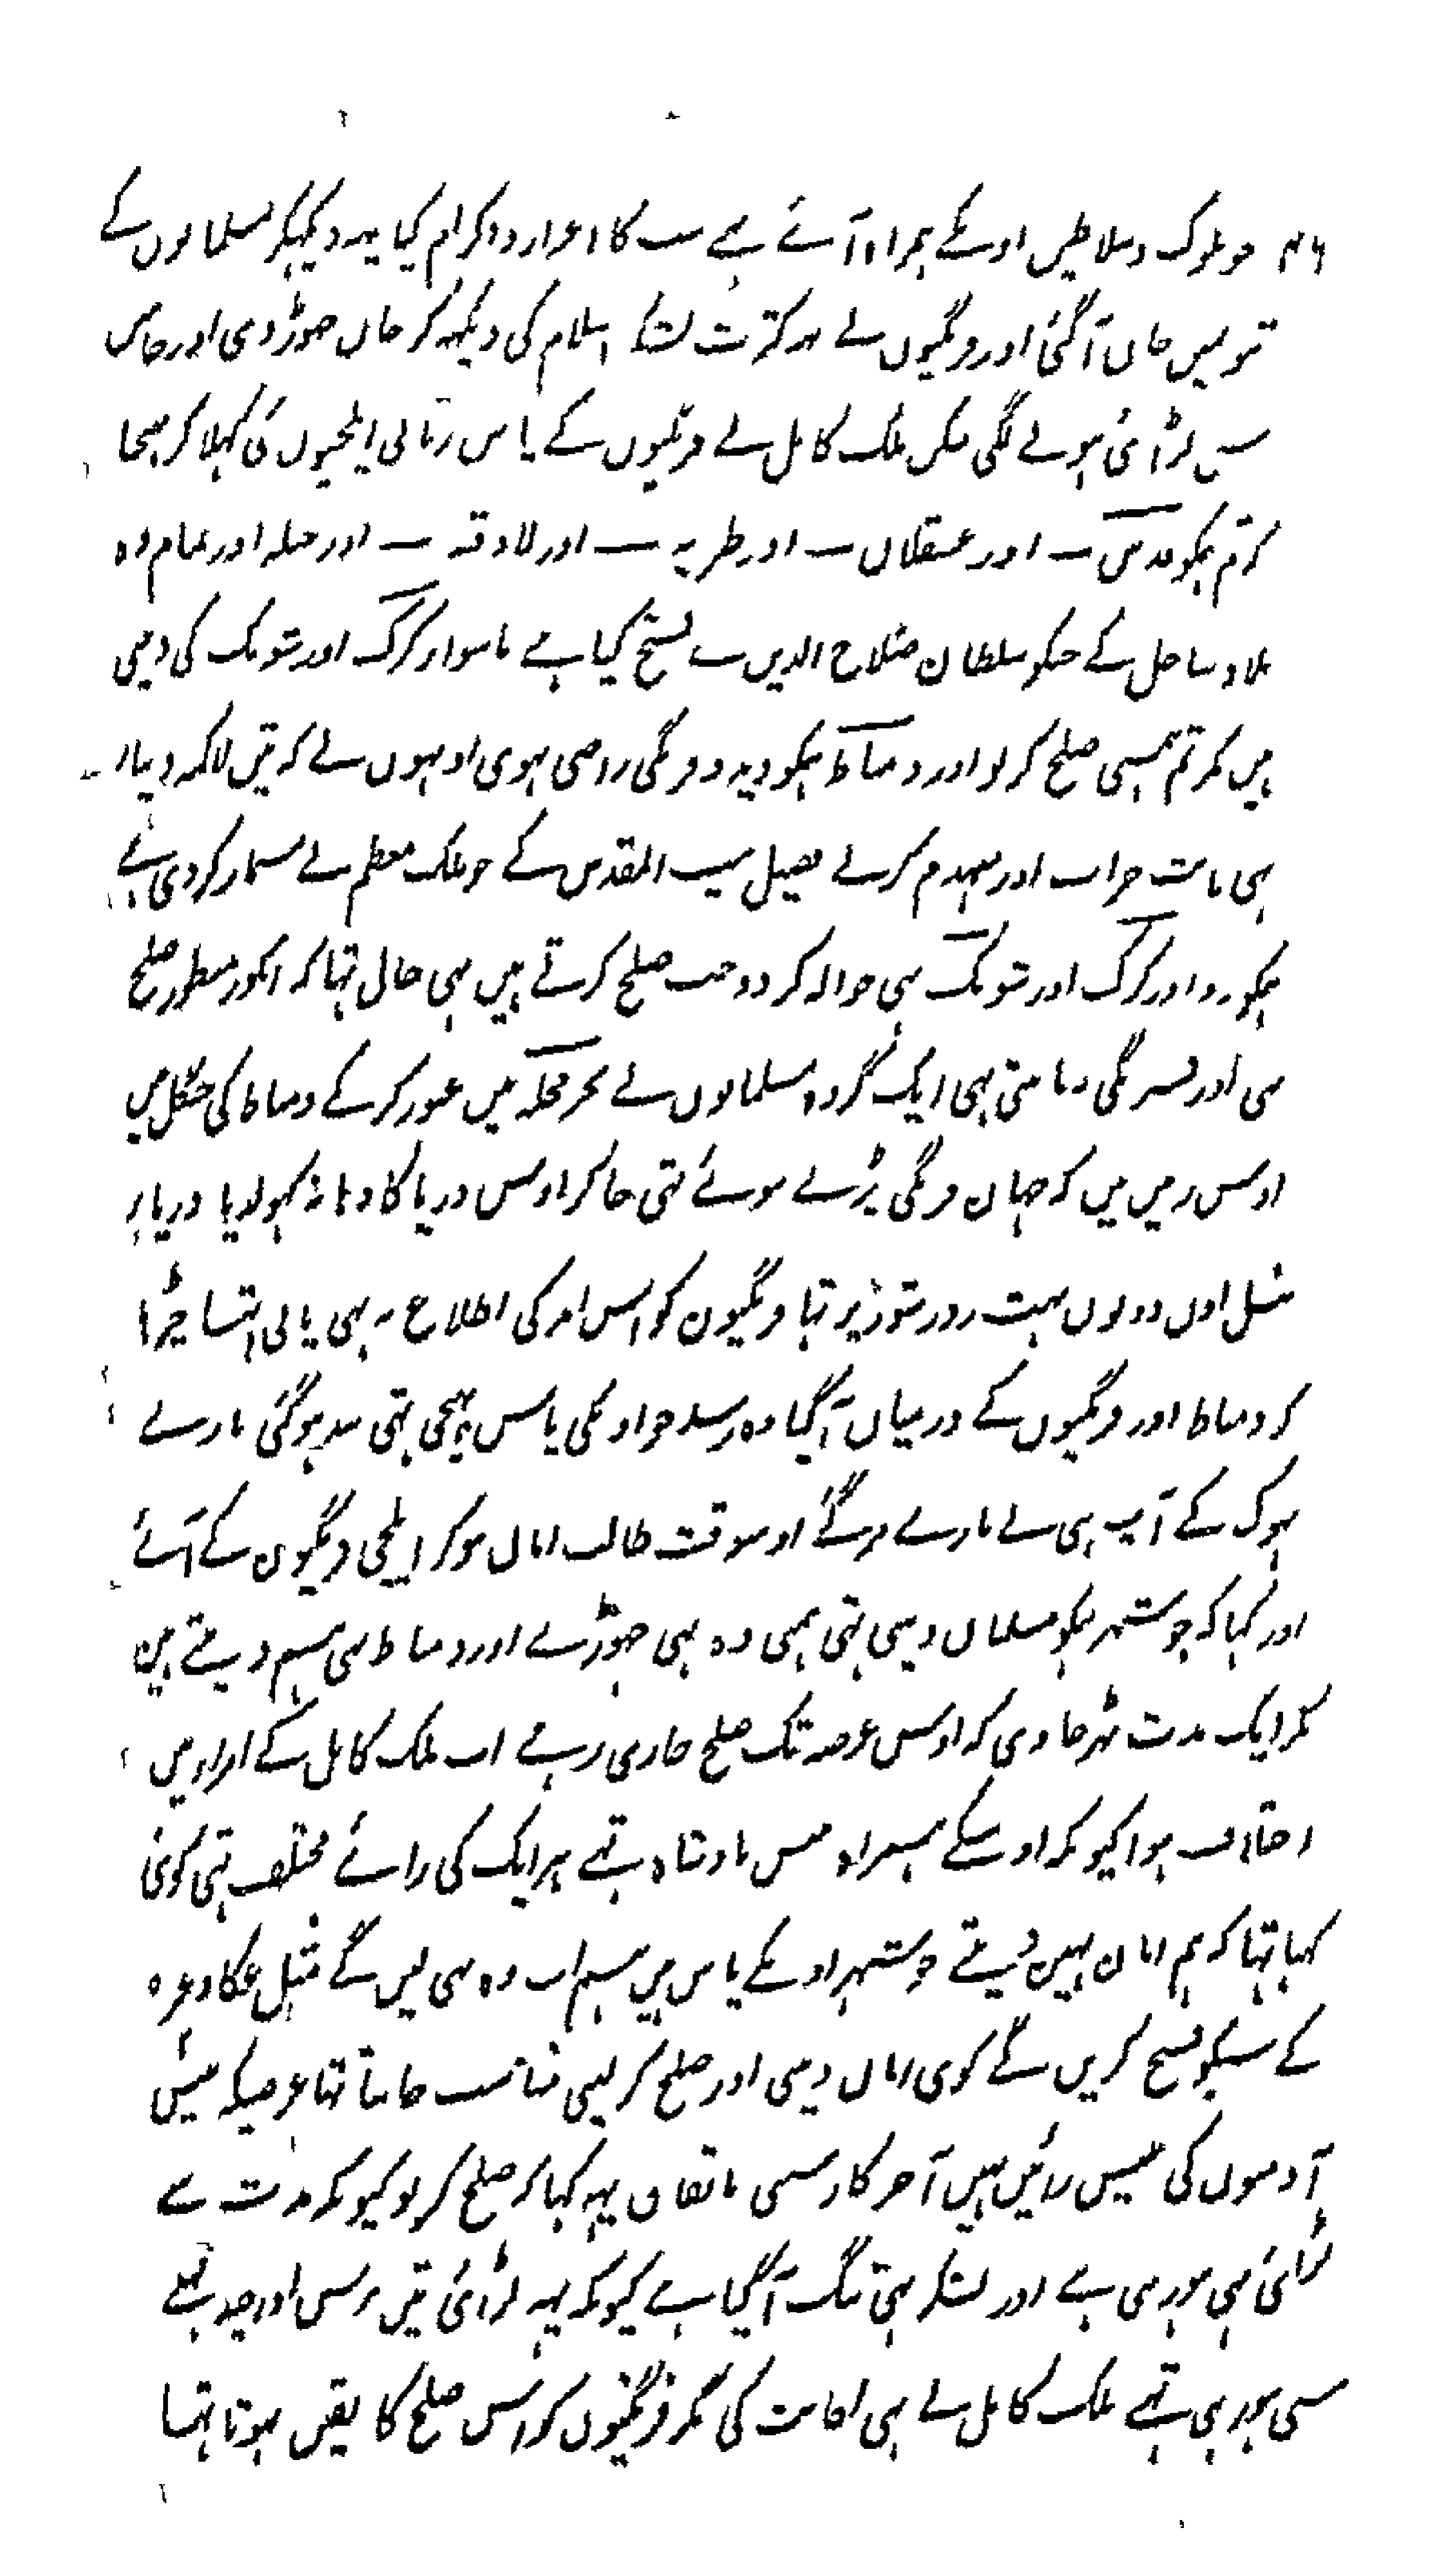 ۴۶ جو ملوک و سلاطین اونکے ہمراہ آئے ہے سب کا اعزاز و اکرام کیا یہہ دیکہکر مسلمانوں کے
تو میں جان آگئی اور فرنگیوں نے یہ کثرت لشکر اسلام کی دیکہہ کر جان چھوڑ دی اور جانبین
سے لڑائی ہونے لگی لیکن ملک کامل نے فرنگیوں کے پاس زبانی ایلچیوں کی کہلا کر بھیجا
کہ تم ہمکو قدس ـ اور عسقلان ـ اور طبریہ ـ اور لاذقیہ ـ اور جبلہ اور تمام وہ
بلاد ساحل کے جنکو سلطان صلاح الدین نے فتح کیا ہے ماسوا کرک اور شوبک کی دیتی
ہیں مگر تم ہمسی صلح کر لو اور دمیاط ہمکو دیدو فرنگی راضی نہوی اونہوں نے کہ تین لاکہہ دینار
بھی بابت خراب اور منہدم کرنے فصیل بیت المقدس کے جو ملک معظم نے مسمار کر دی ہے
ہمکو دو اور کرک اور شوبک بھی حوالہ کر دو جب صلح کرتے ہیں یہی حال تہا کہ انکو منظور صلح
تھی اور فرنگی نہ مانتی تہی ایک گروہ مسلمانوں نے بحر محلہ میں عبور کر کے دمیاط کی جنگل میں
اوس زمین میں کہ جہاں فرنگی پڑے ہوئے تہی جا کر اوس دریا کا دہانہ کہولدیا دریا
نیل اون دونوں بہت زور شور پر تہا فرنگیون کو اس امر کی اطلاع نہ تہی پانی اتنا چڑا
کہ دمیاط اور فرنگیوں کے درمیاں آگیا وہ رسد جو اونکی پاس پہنچی تہی بند ہو گئی مارے
بہوک کے آپ ہی سے مارے مر گئے اوسوقت طالب امان ہو کر ایلچی فرنگیون کے آئے
اور کہا کہ جو شہر ہمکو مسلمان دیتی تہی ہمنی وہ بہی چھوڑے اور دمیاط بہی ہم دیتے ہین
مگر ایک مدت ٹھر جاوی کہ اوس عرصہ تک صلح جاری رہے اب ملک کامل کے امراء میں
اختلاف ہوا کیونکہ اوسکے ہمراہ بیس بادشاہ تہے ہر ایک کی رائے مختلف تہی کوئی
کہتا تہا کہ ہم امان نہین دیتے جو شہر اونکے پاس ہیں ہم اب وہ بہی لیں گے مثل عکا وغیرہ
کے سبکو فتح کریں گے کوئی امان دینی اور صلح کر لینی مناسب جانتا تہا غرضیکہ بیس
آدمیوں کی بیس رائیں ہیں آخر کار سبہی باتفاق یہہ کہا کہ صلح کر لو کیونکہ مدت سے
لڑائی ہی ہو رہی ہے اور لشکر بہی تنگ آگیا ہے کیونکہ یہہ لڑائی تین برس اور چند مہینے
سی ہو رہی تہے ملک کامل نے بہی اجابت کی مگر فرنگیوں کو اس صلح کا یقین نہوتا تہا